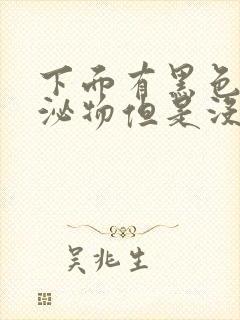 下面有黑色
泌物但是没
吴兆生